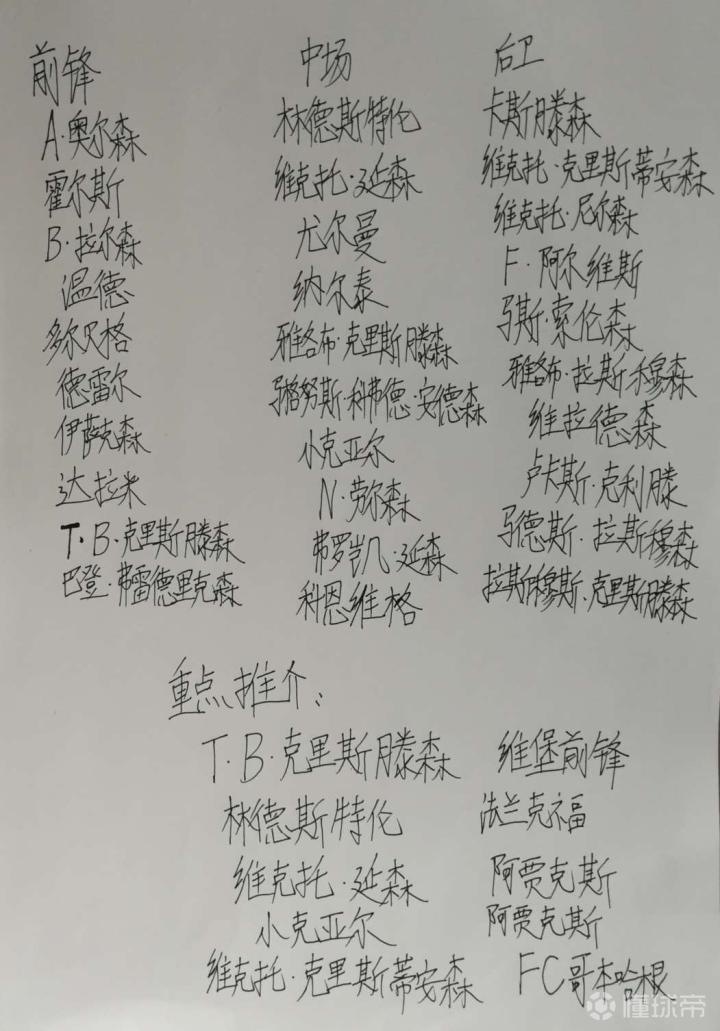 前锋 中场 后卫
A·奥尔森 林德斯特伦 卡斯滕森
霍尔斯 维克托·延森 维克托·克里斯蒂安森
B·拉尔森 尤尔曼 维克托·尼尔森
温德 纳尔泰 F·阿尔维斯
多尔贝格 雅各布·克里斯滕森 马斯·索伦森
德雷尔 马格努斯·科弗德·安德森 雅各布·拉斯穆森
伊萨克森 小克亚尔 维拉德森
达拉米 N·劳尔森 卢卡斯·克利滕
T·B·克里斯滕森 弗罗凯几·延森 马德斯·拉斯穆森
巴登·弗雷德里克森 科恩维格 拉斯穆斯·克里斯滕森
重点推介:
T·B·克里斯滕森 维堡前锋
林德斯特伦 法兰克福
维克托·延森 阿贾克斯
小克亚尔 阿贾克斯
维克托·克里斯蒂安森 FC哥本哈根
懂球帝